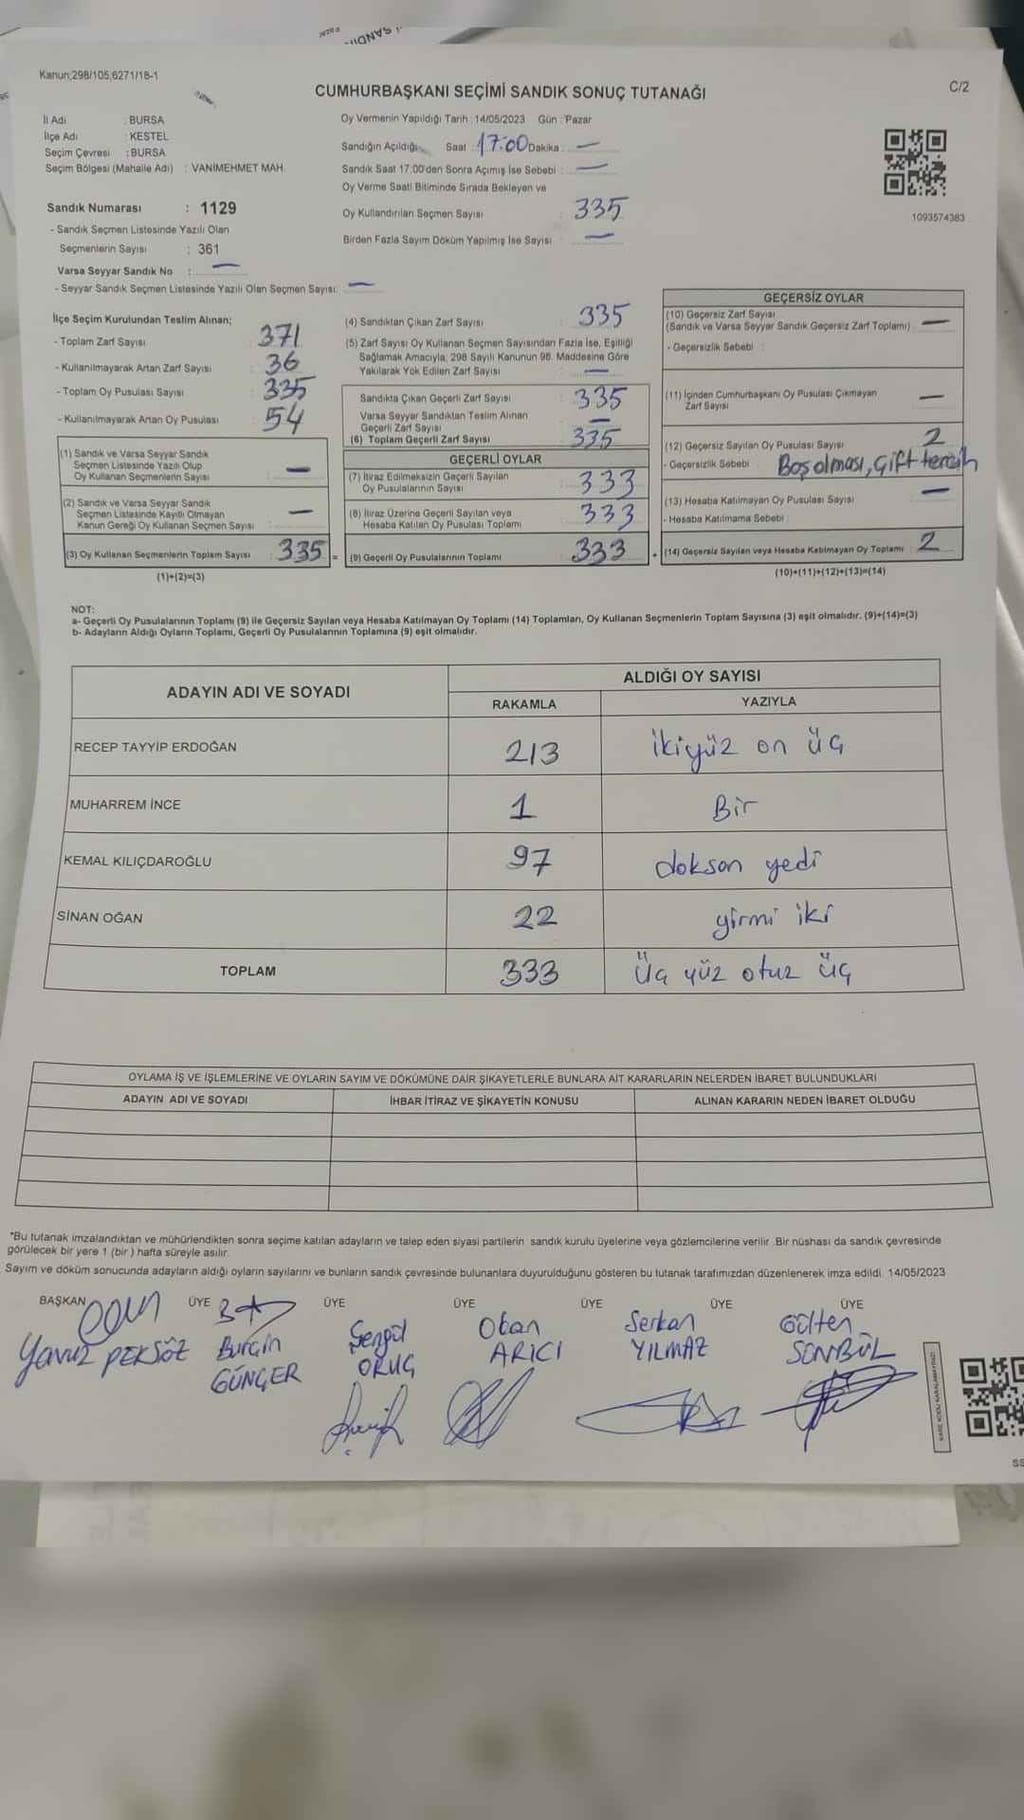 Kanun;298/105,6271/18-1
CUMHURBAŞKANI SEÇİMİ SANDIK SONUÇ TUTANAĞI
C/2
İl Adı : BURSA
İlçe Adı : KESTEL
Seçim Çevresi : BURSA
Seçim Bölgesi (Mahalle Adı) : VANİMEHMET MAH.
Sandık Numarası : 1129
- Sandık Seçmen Listesinde Yazılı Olan
Seçmenlerin Sayısı : 361
Varsa Seyyar Sandık No : —
- Seyyar Sandık Seçmen Listesinde Yazılı Olan Seçmen Sayısı: —
Oy Vermenin Yapıldığı Tarih : 14/05/2023 Gün : Pazar
Sandığın Açıldığı Saat : 17:00 Dakika : —
Sandık Saat 17.00'den Sonra Açımış İse Sebebi : —
Oy Verme Saati Bitiminde Sırada Bekleyen ve
Oy Kullandırılan Seçmen Sayısı : 335
Birden Fazla Sayım Döküm Yapılmış İse Sayısı : —
1093574383
İlçe Seçim Kurulundan Teslim Alınan;
- Toplam Zarf Sayısı : 371
- Kullanılmayarak Artan Zarf Sayısı : 36
- Toplam Oy Pusulası Sayısı : 335
- Kullanılmayarak Artan Oy Pusulası : 54
(1) Sandık ve Varsa Seyyar Sandık
Seçmen Listesinde Yazılı Olup
Oy Kullanan Seçmenlerin Sayısı : —
(2) Sandık ve Varsa Seyyar Sandık
Seçmen Listesinde Kayıtlı Olmayan
Kanun Gereği Oy Kullanan Seçmen Sayısı : —
(3) Oy Kullanan Seçmenlerin Toplam Sayısı : 335 =
(1)+(2)=(3)
(4) Sandıktan Çıkan Zarf Sayısı : 335
(5) Zarf Sayısı Oy Kullanan Seçmen Sayısından Fazla İse, Eşitliği
Sağlamak Amacıyla, 298 Sayılı Kanunun 98. Maddesine Göre
Yakılarak Yok Edilen Zarf Sayısı : —
Sandıkta Çıkan Geçerli Zarf Sayısı : 335
Varsa Seyyar Sandıktan Teslim Alınan
Geçerli Zarf Sayısı : —
(6) Toplam Geçerli Zarf Sayısı : 335
GEÇERLİ OYLAR
(7) İtiraz Edilmeksizin Geçerli Sayılan
Oy Pusulalarının Sayısı : 333
(8) İtiraz Üzerine Geçerli Sayılan veya
Hesaba Katılan Oy Pusulası Toplamı : 333
(9) Geçerli Oy Pusulalarının Toplamı : 333 +
GEÇERSİZ OYLAR
(10) Geçersiz Zarf Sayısı
(Sandık ve Varsa Seyyar Sandık Geçersiz Zarf Toplamı) : —
- Geçersizlik Sebebi :
(11) İçinden Cumhurbaşkanı Oy Pusulası Çıkmayan
Zarf Sayısı : —
(12) Geçersiz Sayılan Oy Pusulası Sayısı : 2
- Geçersizlik Sebebi : Boş olması, çift tercih
(13) Hesaba Katılmayan Oy Pusulası Sayısı : —
- Hesaba Katılmama Sebebi :
(14) Geçersiz Sayılan veya Hesaba Katılmayan Oy Toplamı : 2
(10)+(11)+(12)+(13)=(14)
NOT:
a- Geçerli Oy Pusulalarının Toplamı (9) ile Geçersiz Sayılan veya Hesaba Katılmayan Oy Toplamı (14) Toplamları, Oy Kullanan Seçmenlerin Toplam Sayısına (3) eşit olmalıdır. (9)+(14)=(3)
b- Adayların Aldığı Oyların Toplamı, Geçerli Oy Pusulalarının Toplamına (9) eşit olmalıdır.
ADAYIN ADI VE SOYADI
ALDIĞI OY SAYISI
RAKAMLA YAZIYLA
RECEP TAYYİP ERDOĞAN 213 ikiyüz on üç
MUHARREM İNCE 1 Bir
KEMAL KILIÇDAROĞLU 97 doksan yedi
SİNAN OĞAN 22 yirmi iki
TOPLAM 333 Üç yüz otuz üç
OYLAMA İŞ VE İŞLEMLERİNE VE OYLARIN SAYIM VE DÖKÜMÜNE DAİR ŞİKAYETLERLE BUNLARA AİT KARARLARIN NELERDEN İBARET BULUNDUKLARI
ADAYIN ADI VE SOYADI İHBAR İTİRAZ VE ŞİKAYETİN KONUSU ALINAN KARARIN NEDEN İBARET OLDUĞU
"Bu tutanak imzalandıktan ve mühürlendikten sonra seçime katılan adayların ve talep eden siyasi partilerin sandık kurulu üyelerine veya gözlemcilerine verilir. Bir nüshası da sandık çevresinde
görülecek bir yere 1 (bir) hafta süreyle asılır.
Sayım ve döküm sonucunda adayların aldığı oyların sayılarını ve bunların sandık çevresinde bulunanlara duyurulduğunu gösteren bu tutanak tarafımızdan düzenlenerek imza edildi. 14/05/2023
BAŞKAN ÜYE ÜYE ÜYE ÜYE ÜYE ÜYE
Yavuz PEKSÖZ
Burçin
GÜNGER
Şengül
ORUÇ
Okan
ARICI
Serkan
YILMAZ
Gülten
SONBÜL